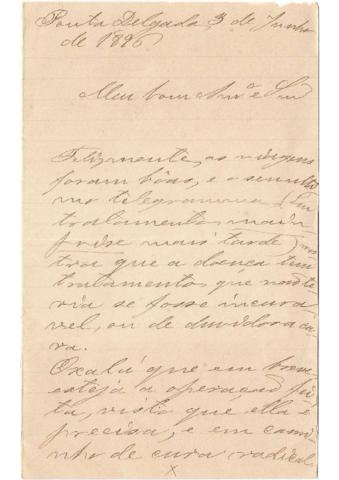 Ponta Delgada 3 de Junho
de 1896.
Meu bom Am.º e Snr
Felizmente, as viagens
foram bôas, e o seu ulti
mo telegramma (Em
tratamento,
mais tarde) mos
tra que a doença tem
tratamento, que não te
ria se fosse incura
vel, ou de duvidosa cu
ra.
Oxalá que em breve
esteja a operação fei
ta, visto que ella é
precisa, e em cami
nho de cura radical
x